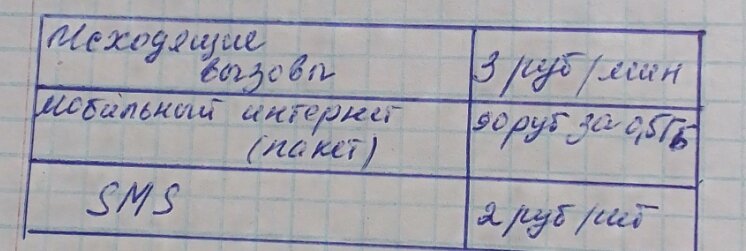 Исходящие
вызовы
3 руб/мин
мобильный интернет
(пакет)
90 руб за 0,5ГБ
SMS
2 руб/шт